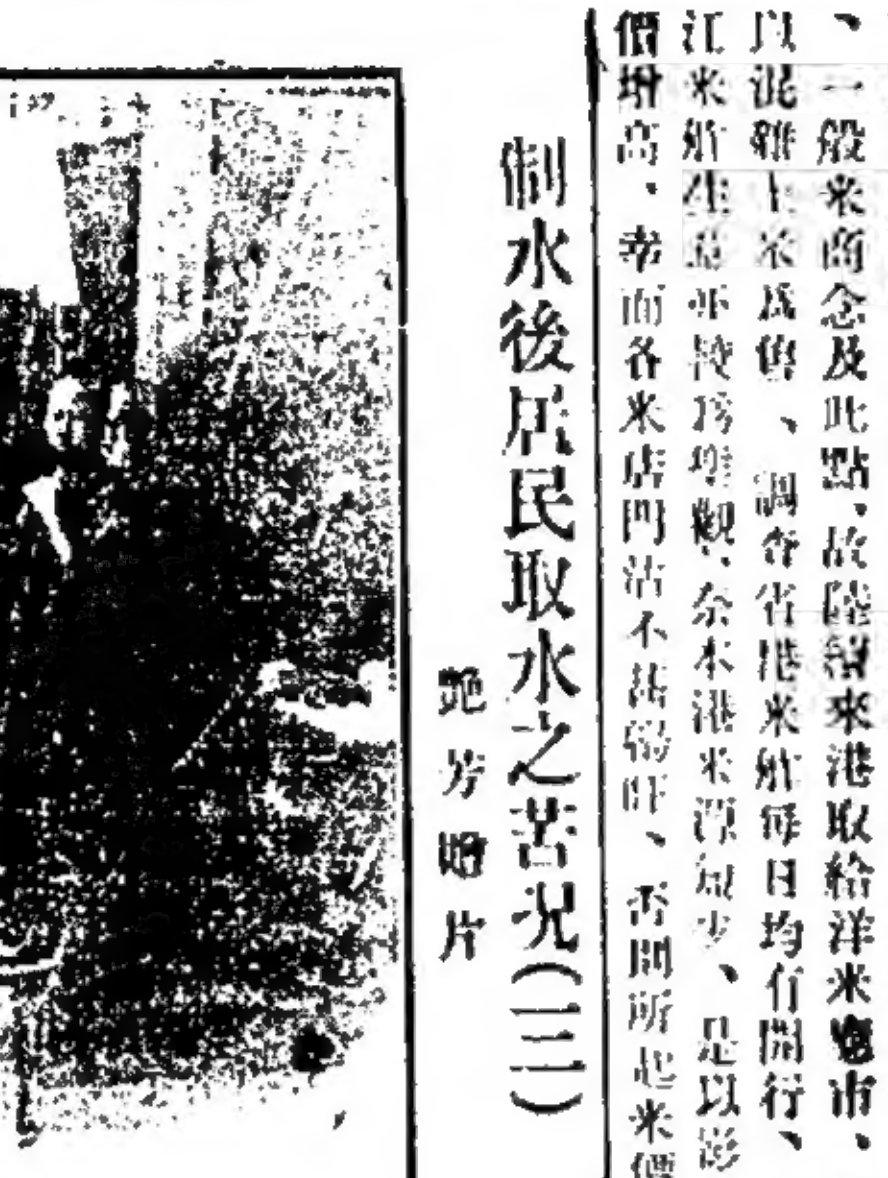 、一般米商念及此點、故陸續來港取給洋米應市、
以混雜土米爲售、調查省港米舩每日均有開行、
江米舩生意亦較爲壯觀、奈本港米源短少、是以影
價增高、幸而各米店門沽不甚暢旺、否則所起米價
制水後居民取水之苦況(三)
艷芳照片